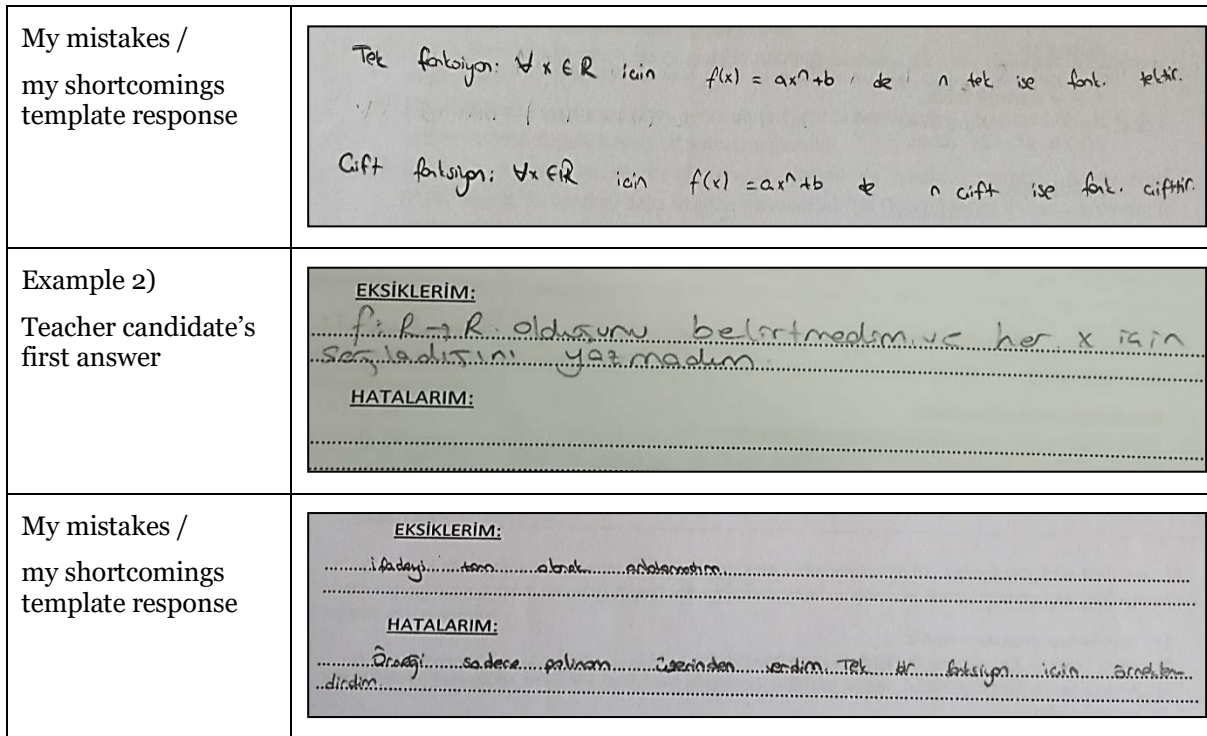 My mistakes /
my shortcomings
template response
Tek fonksiyon: ∀x ∈ R için f(x) = axⁿ+b de n tek ise fonk. tektir.
Çift fonksiyon: ∀x ∈ R için f(x) = axⁿ+b de n çift ise fonk. çifttir.
Example 2)
Teacher candidate's
first answer
EKSİKLERİM:
f: R → R olduğunu belirtmedim ve her x için
sağladığını yazmadım.
HATALARIM:
My mistakes /
my shortcomings
template response
EKSİKLERİM:
ifadeyi tam olarak
HATALARIM:
Örneği sadece polinom üzerinden verdim. Tek bir fonksiyon için örneklen-
dirdim.